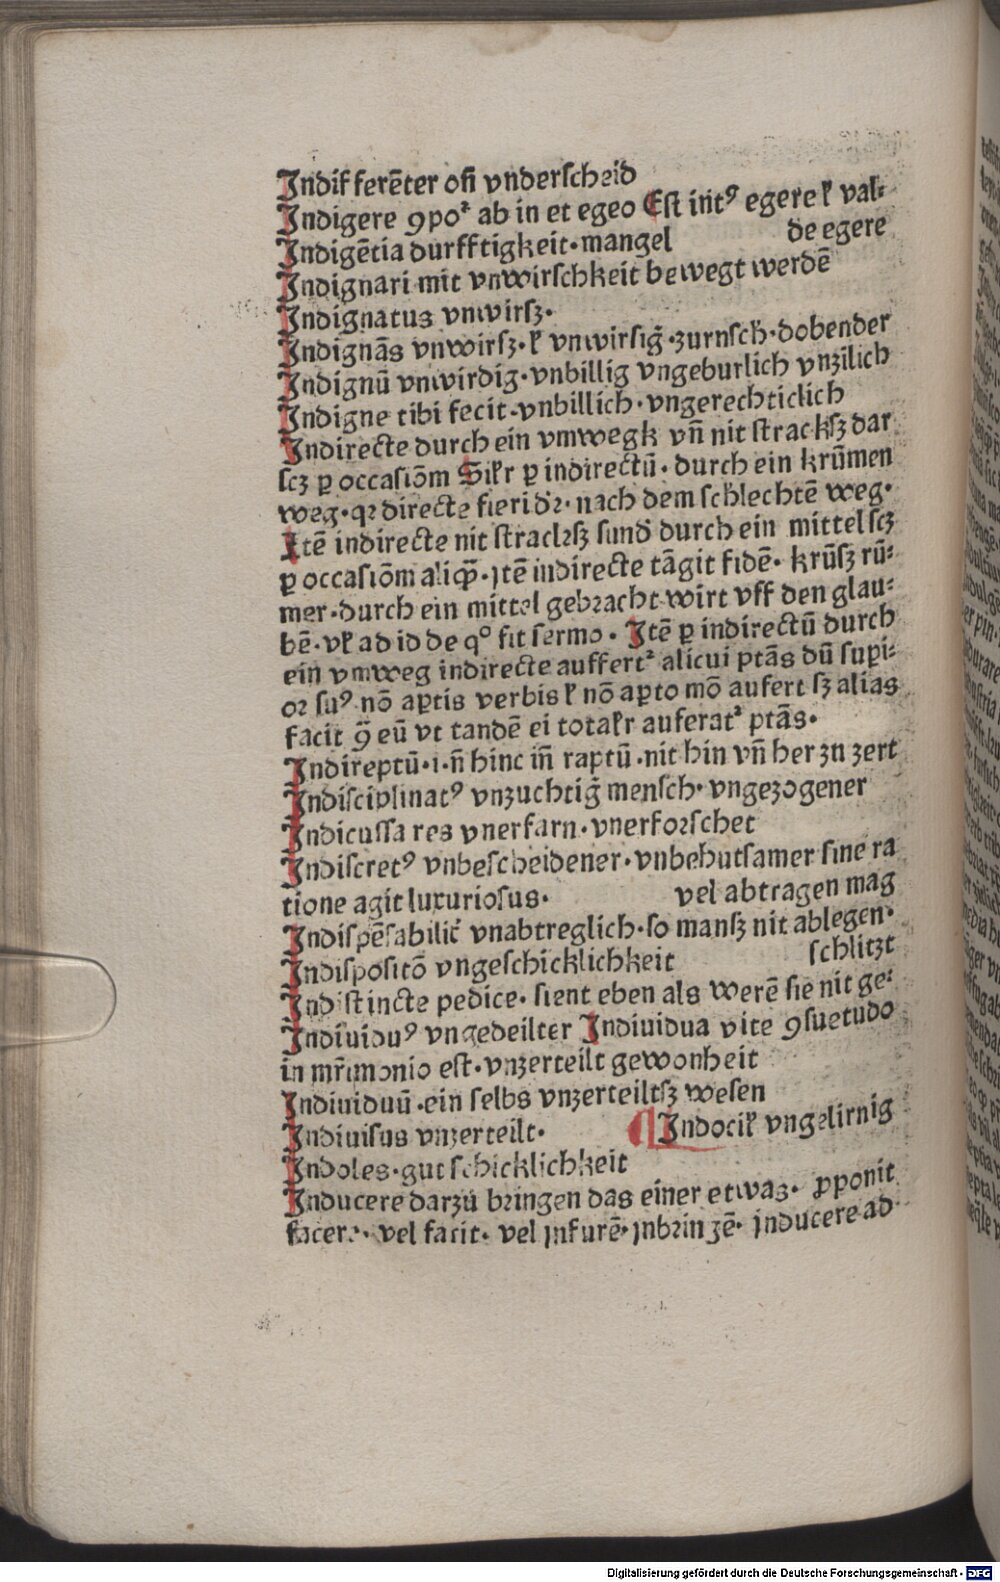 Indifferēter oñ vnderscheid
Indigere ꝯpoꝛ᷒ ab in et egeo Est int᷒ egere ꝉ val⸗
Indigētia durfftigkeit·mangel de egere
Indignari mit vnwirschkeit bewegt werdē
Indignatus vnwirsz·
Indignās vnwirsz·ꝉ vnwirsig̃·zurnsch̃·dobender
Indignū vnwirdig·vnbillig vngeburlich vnzilich
Indigne tibi fecit·vnbillich·vngerechticlich
Indirecte durch ein vmwegk vñ nit stracksz dar
scz ꝑ occasiōm Silr ꝑ indirectū· durch ein krūmen
weg·qꝛ directe fieri dꝛ· nach dem schlechtē weg·
Itē indirecte nit straclsz sund̃ durch ein mittel scz
ꝑ occasiōm aliqͣ̃·jtē indirecte tāgit fidē· krūsz rū⸗
mer·durch ein mittel gebracht wirt vff den glau⸗
bē·vl̃ ad id de qͦ fit sermo· Itē ꝑ indirectū durch
ein vmweg indirecte auffertᷣ alicui ptās dū supi⸗
oꝛ suꝰ nō aꝑtis verbis ꝉ nō aꝑto mō aufert sz alias
facit ꝯ̃ eū vt tandē ei totalr auferatᷣ ptās·
Indireptū·i·ñ hinc iñ raptū·nit hin vñ her zu zert
Indisciplinatꝰ vnzuchtig̃ mensch·vngezogener
Indicussa res vnerfarn·vnerforschet
Indiscretꝰ vnbescheidener·vnbehutsamer sine ra
tione agit luxuriosus· vel abtragen mag
Indispēsabilit̃ vnabtreglich·so mansz nit ablegen·
Indispositō vngeschicklichkeit schlitzt
Indistincte pedice· sient eben als werē sie nit ge⸗
Indiuiduꝰ vngedeilter Indiuidua vite ꝯsuetudo
in mr̃imonio est·vnzerteilt gewonheit
Indiuiduū·ein selbs vnzerteiltsz wesen
Indiuisus vnzerteilt· ¶Indocil̃ vngelirnig
Indoles·gut schicklichkeit
Inducere darzu bringen das einer etwas· ꝓponit
facere· vel facit· vel jnfurē·jnbringē· jnducere ad
Digitalisierung gefördert durch die Deutsche Forschungsgemeinschaft - DFG